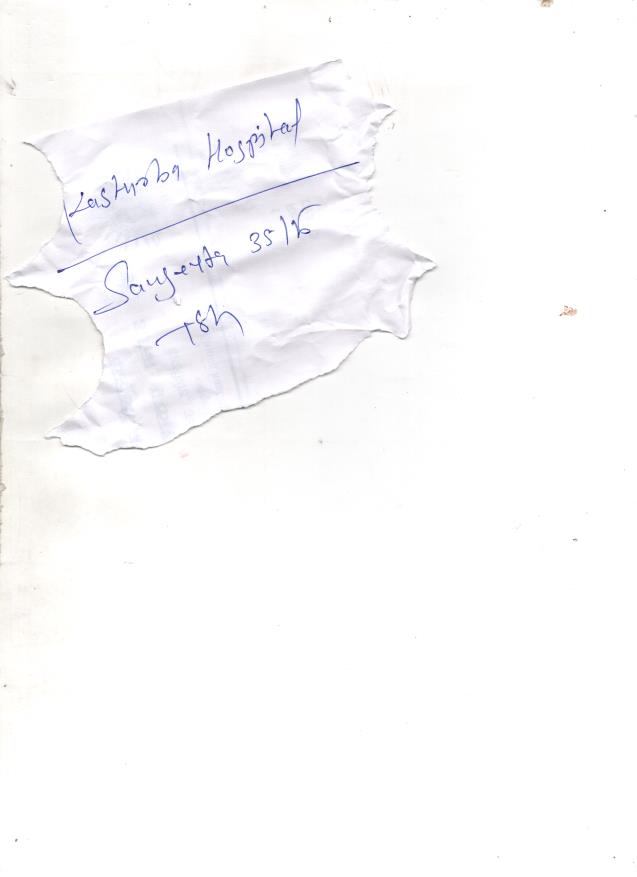 Kasturba Hospital
Sangeeta 35/
TSH